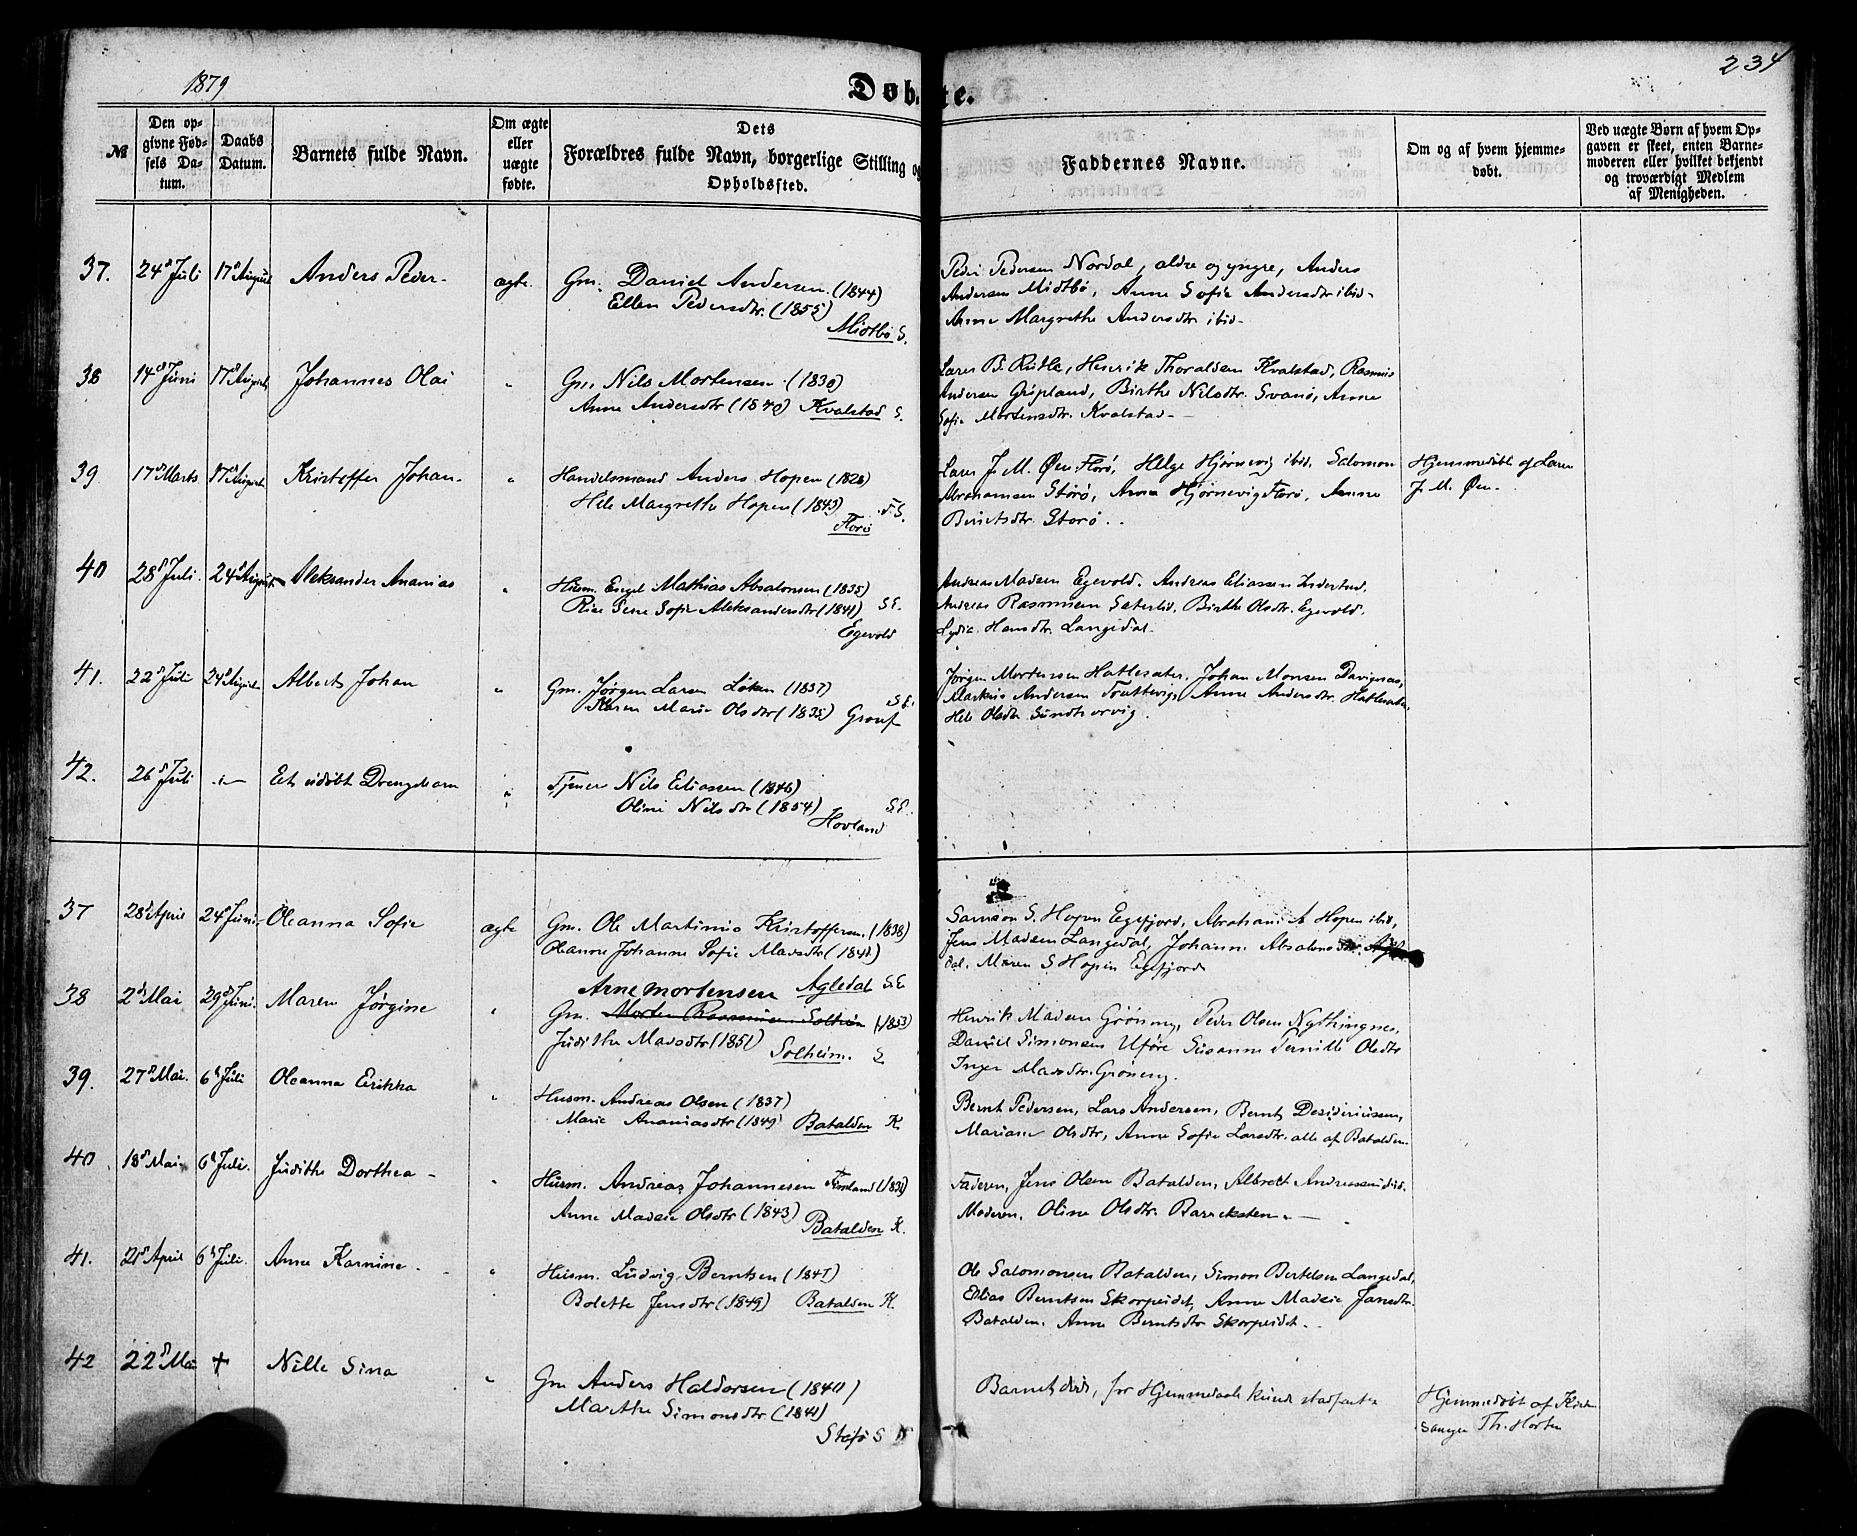 1879
Døbte.
234
№
Den opgivne Fødsels Datum.
Daabs Datum.
Barnets fulde Navn.
Om ægte eller uægte fødte.
Dets Forældres fulde Navn, borgerlige Stilling og Opholdssted.
Faddernes Navne.
Om og af hvem hjemmedøbt.
Ved uægte Børn af hvem Opgaven er skeet, enten Barnemoderen eller hvilket bekjendt og troværdigt Medlem af Menigheden.
37. 24d Juli 17d August Anders Peder - ægte. Gm. Daniel Andersen (1844)
Ellen Pedersdtr. (1855)
Midtbø S.
Peder Pedersen Nordal, ældre og yngre, Anders
Andersen Midtbø, Anne Sofie Andersdtr ibid.
Anne Margrethe Andersdtr ibid.
38 14d Juni 17d August Johannes Olai " Gm. Nils Mortensen (1830)
Anne Andersdtr (1840) Kvalstad S.
Lars B. Rutle, Henrik Thoraldsen Kvalstad, Rasmus
Andersen Grøpland, Birthe Nilsdtr. Svanø, Anne
Sofie Mortensdtr. Kvalstad -
39 17d Marts 17d August Kristoffer Johan. " Handelsmand Anders Hopen (1828)
Hele Margrethe Hopen (1843) F.S.
Florø
Lars J. M. Øen Florø, Helge Hjørnevig ibid. Salomon
Abrahamsen Storø, Anna Hjørnevig Florø, Anne
Berntsdtr. Storø.
Hjemmedøbt af Lars
J. M. Øen.
40 28d Juli 24d August Aleksander Ananias " Husm. Engel Mathias Absalonsen (1835)
Sofie Aleksandersdtr (1841) S.E.
Egevold
Andreas Madsen Egevold. Andreas Eliassen
Andreas Rasmussen Sæterlid. Birthe Olsdtr. Egevold.
Lydia Hansdtr. Langedal.
41. 22d Juli 24d August Alberts Johan " Gm. Jørgen Larsen Løken (1837)
Karen Marie Olsdtr (1835) Grouf S.E.
Jørgen Mortensen Hatlesæter, Johan Monsen Davignæs,
Markus Andersen Trættevig, Anne Andersdtr. Hatlesæter,
Hele Olsdtr
42. 26d Juli Et udøbt Drengebarn " Tjener Nils Eliassen (1846)
Oline Nilsdtr (1854) S.E.
Hovland
37 28d April 24d Juni Oleanna Sofie ægte Gm. Ole Martinus Kristoffersen (1838)
Oleanne Johanne Sofie Madsdtr (1841)
Agledal S.E.
Samson S. Hopen Egefjord, Abraham A Hopen ibid,
Jens Madsen Langedal, Johanne Absalons
dal, Maren S Hopen Egefjord
38 2d Mai 29d Juni. Maren Jørgine " Arne Mortensen
Gm. Morten Rasmussen Solheim (1853)
Judithe Madsdtr (1851) Solheim. S.
Henrik Madsen Grøneng, Peder Olsen Nythingnes,
Daniel Simonsen Uføre Susanne Pernille Olsdtr
Inger Madsdtr. Grøneng.
39. 27d Mai. 6d Juli Oleanna Erikka " Husm. Andreas Olsen (1837)
Marie Ananiasdtr (1849) Batalden K.
Bernt Pedersen, Lars Andersen, Bernt Desideriusen,
Mariane Olsdtr, Anne Sofie Larsdtr. alle af Batalden.
40. 18d Mai 6d Juli. Judithe Dorthea - " Husm. Andreas Johannesen Fimland
Anne Madsie Olsdtr (1843)
Batalden K.
Faderen, Jens Olsen Batalden, Albrett Andreassen ibid.
Moderen. Oline Olsdtr.
41. 21d April 6d Juli. Anne Karnine. " Husm. Ludvig Berntsen (1847)
Bolette Jensdtr (1849) Batalden K.
Ole Salomonsen Batalden, Simon Bertelsen Langedal,
Elias Berntsen Skorpeidet, Anne Madsie Jansdtr.
Batalden. Anne Berntsdtr Skorpeidet.
42 22d Mai + Nille Sina " Gm Anders Haldorsen (1840)
Marthe Simonsdtr (1841)
S
Barnet døde, før Hjemmedaaben kunde stadfæstes
Hjemmedøbt af Kirke
sanger Th. Horten